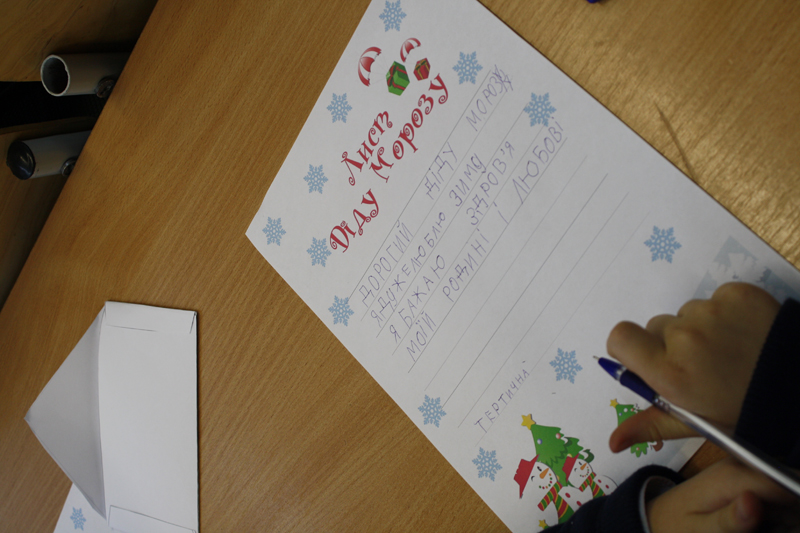 Лист
Діду Морозу
ДОРОГИЙ ДІДУ МОРОЗУ
ЯДУЖЕЛЮБЛЮ ЗИМУ
Я БАЖАЮ ЗДРОВ'Я
МОЇЙ РОДИНІ І ЛЮБОВІ
ТЕРТИЧНИЙ